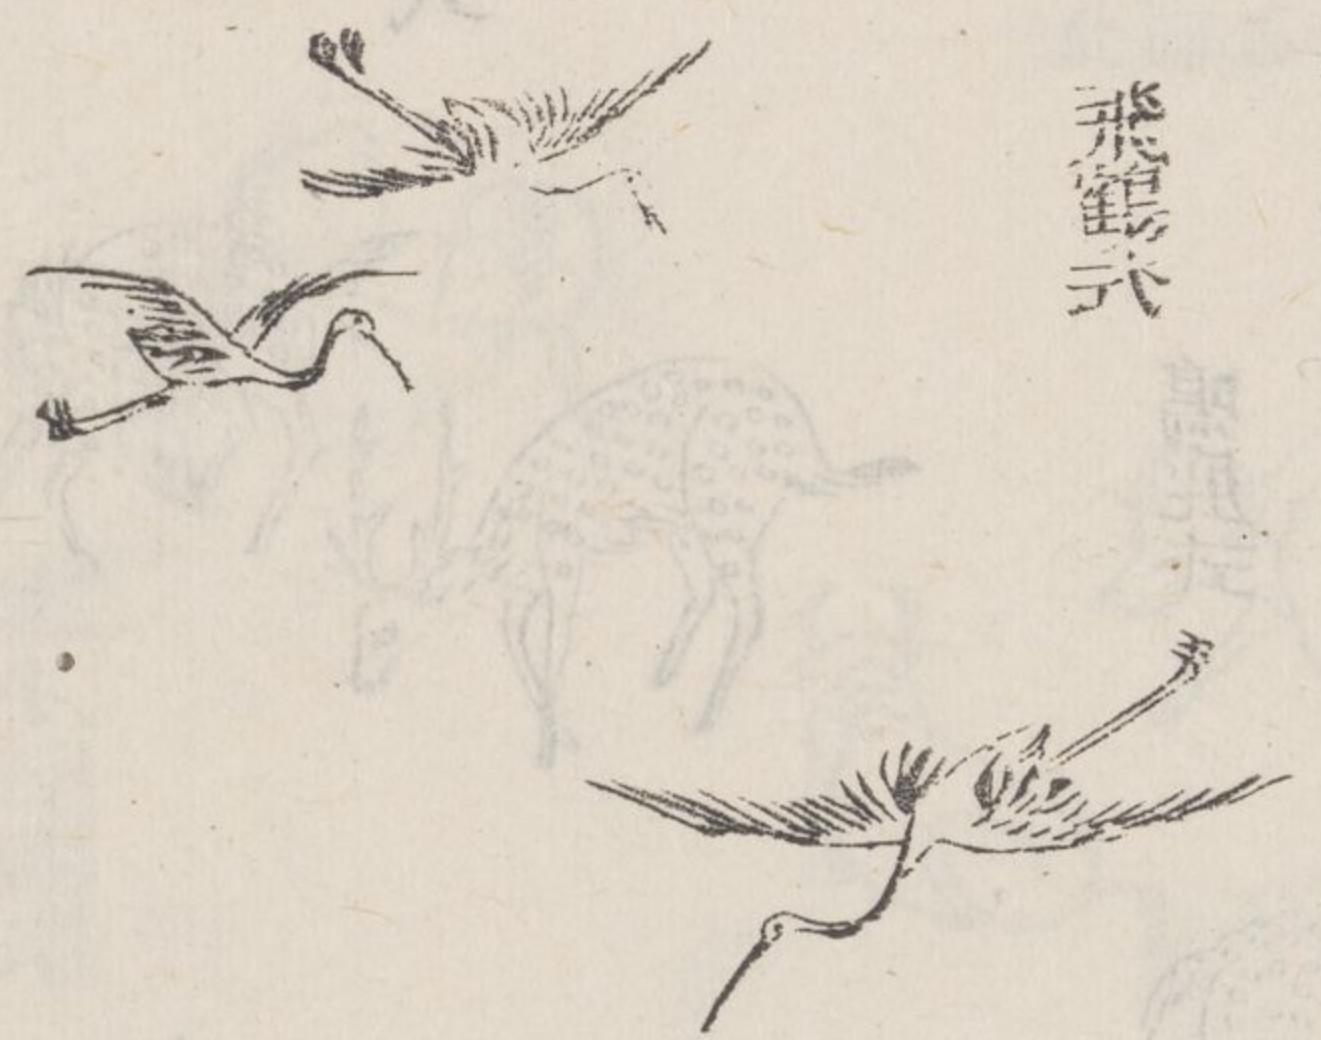 飛鶴式